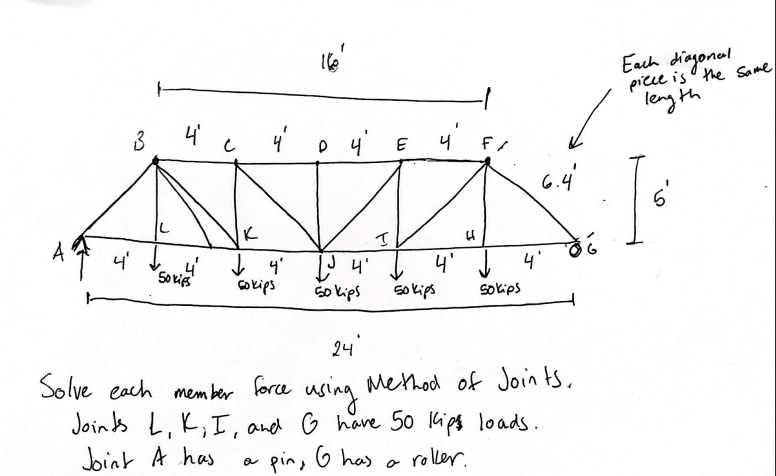 16'
Each diagonal
piece is the same
length
B 4' C 4' D 4' E 4' F
6.4'
5'
A 4' L 4' K 4' J 4' I 4' H 4' G
50 kips 50 kips 50 kips 50 kips 50 kips
24'
Solve each member force using Method of Joints.
Joints L, K, I, and G have 50 kips loads.
Joint A has a pin, G has a roller.